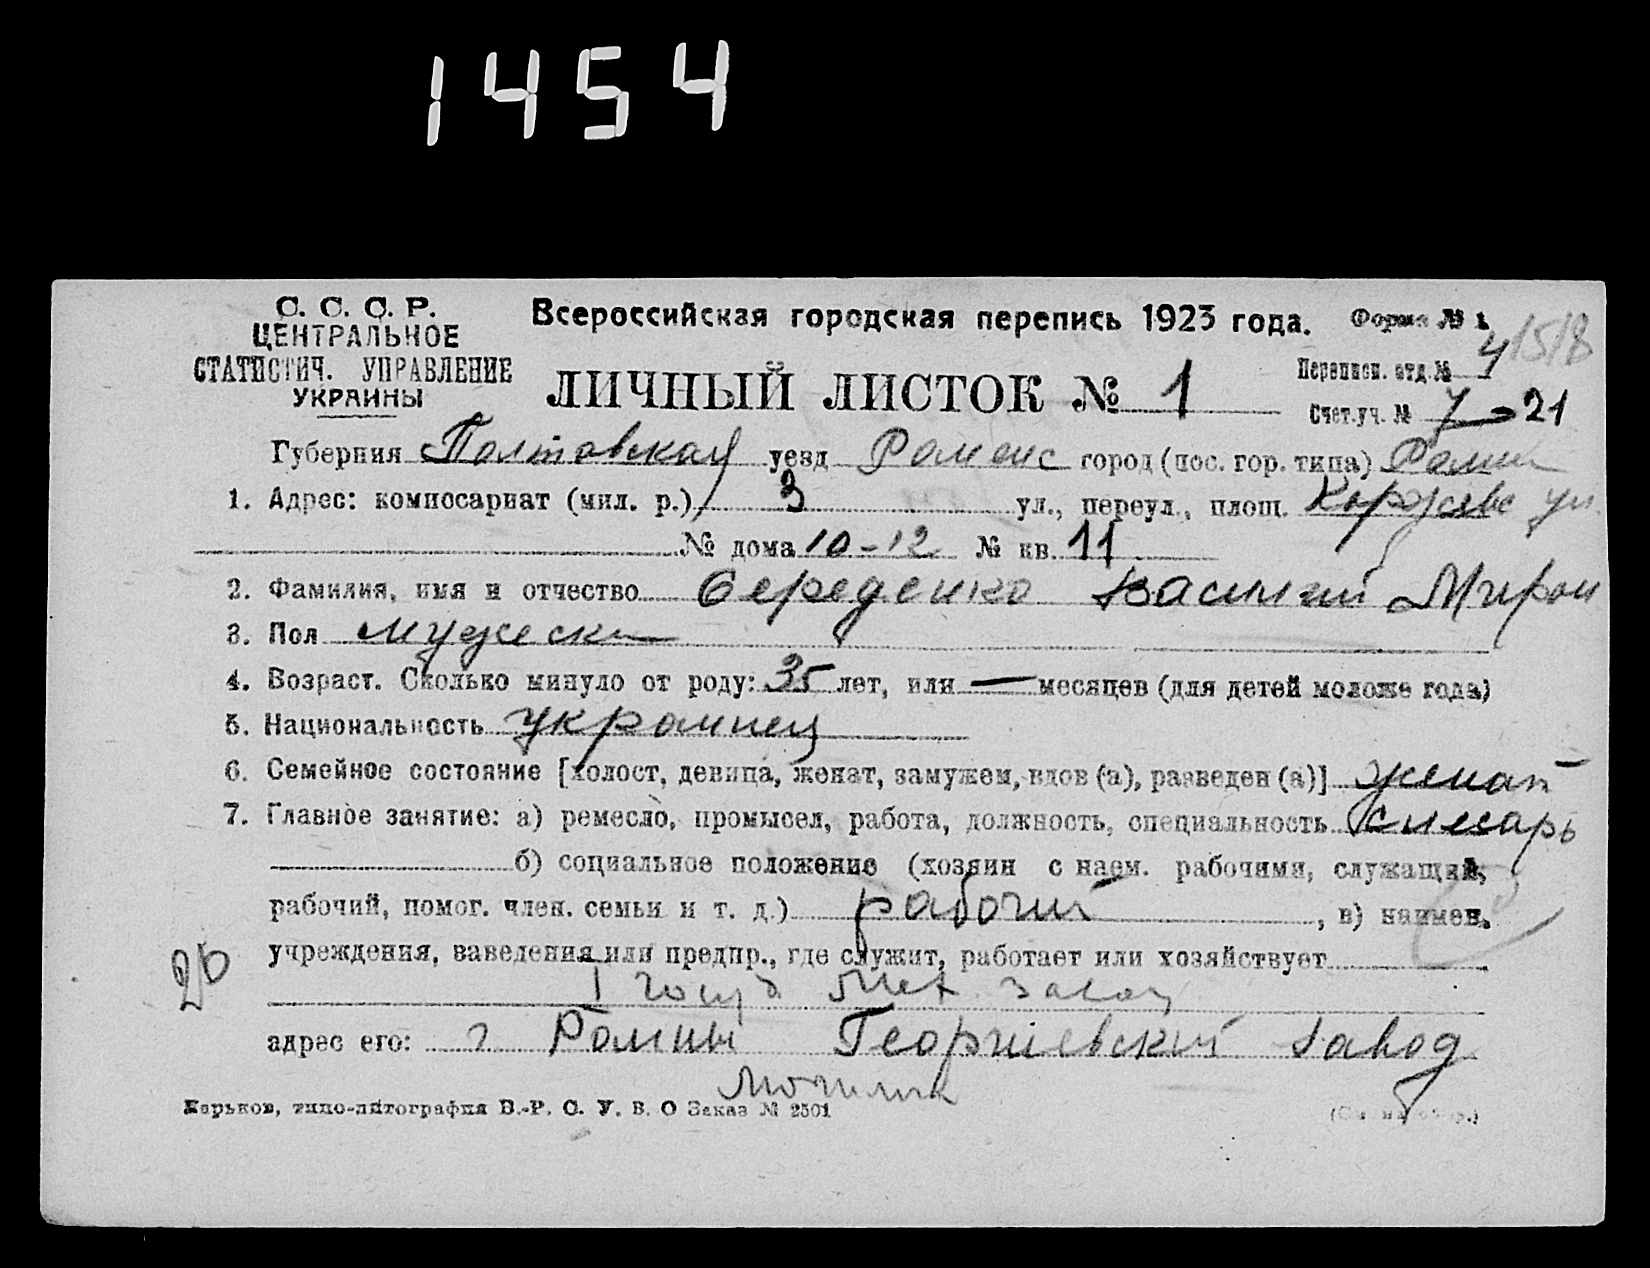 1454
С. С. С. Р.
ЦЕНТРАЛЬНОЕ
СТАТИСТИЧ. УПРАВЛЕНИЕ
УКРАИНЫ
Всероссийская городская перепись 1923 года.
Форма № 1
1518
ЛИЧНЫЙ ЛИСТОК № 1
Переписн. отд. № 4
Счет. уч. № 7 21
Губерния Полтавская уезд Роменс город (пос. гор. типа) Ромни
1. Адрес: комиссариат (мил. р.) 3 ул., переул., площ. ул.
№ дома 10-12 № кв. 11
2. Фамилия, имя и отчество Середенко Василий Мирон
3. Пол мужеск
4. Возраст. Сколько минуло от роду: 35 лет, или — месяцев (для детей моложе года)
5. Национальность украинец
6. Семейное состояние [холост, девица, женат, замужем, вдов (а), разведен (а)] женат
7. Главное занятие: а) ремесло, промысел, работа, должность, специальность слесарь
б) социальное положение (хозяин с наем. рабочими, служащий,
рабочий, помог. член. семьи и т. д.) рабочий, в) наимен.
учреждения, заведения или предпр., где служит, работает или хозяйствует
I Мех
адрес его: г Ромны Георгиевский завод
Харьков, типо-литография В.-Р. С. У. В. О Заказ № 2501